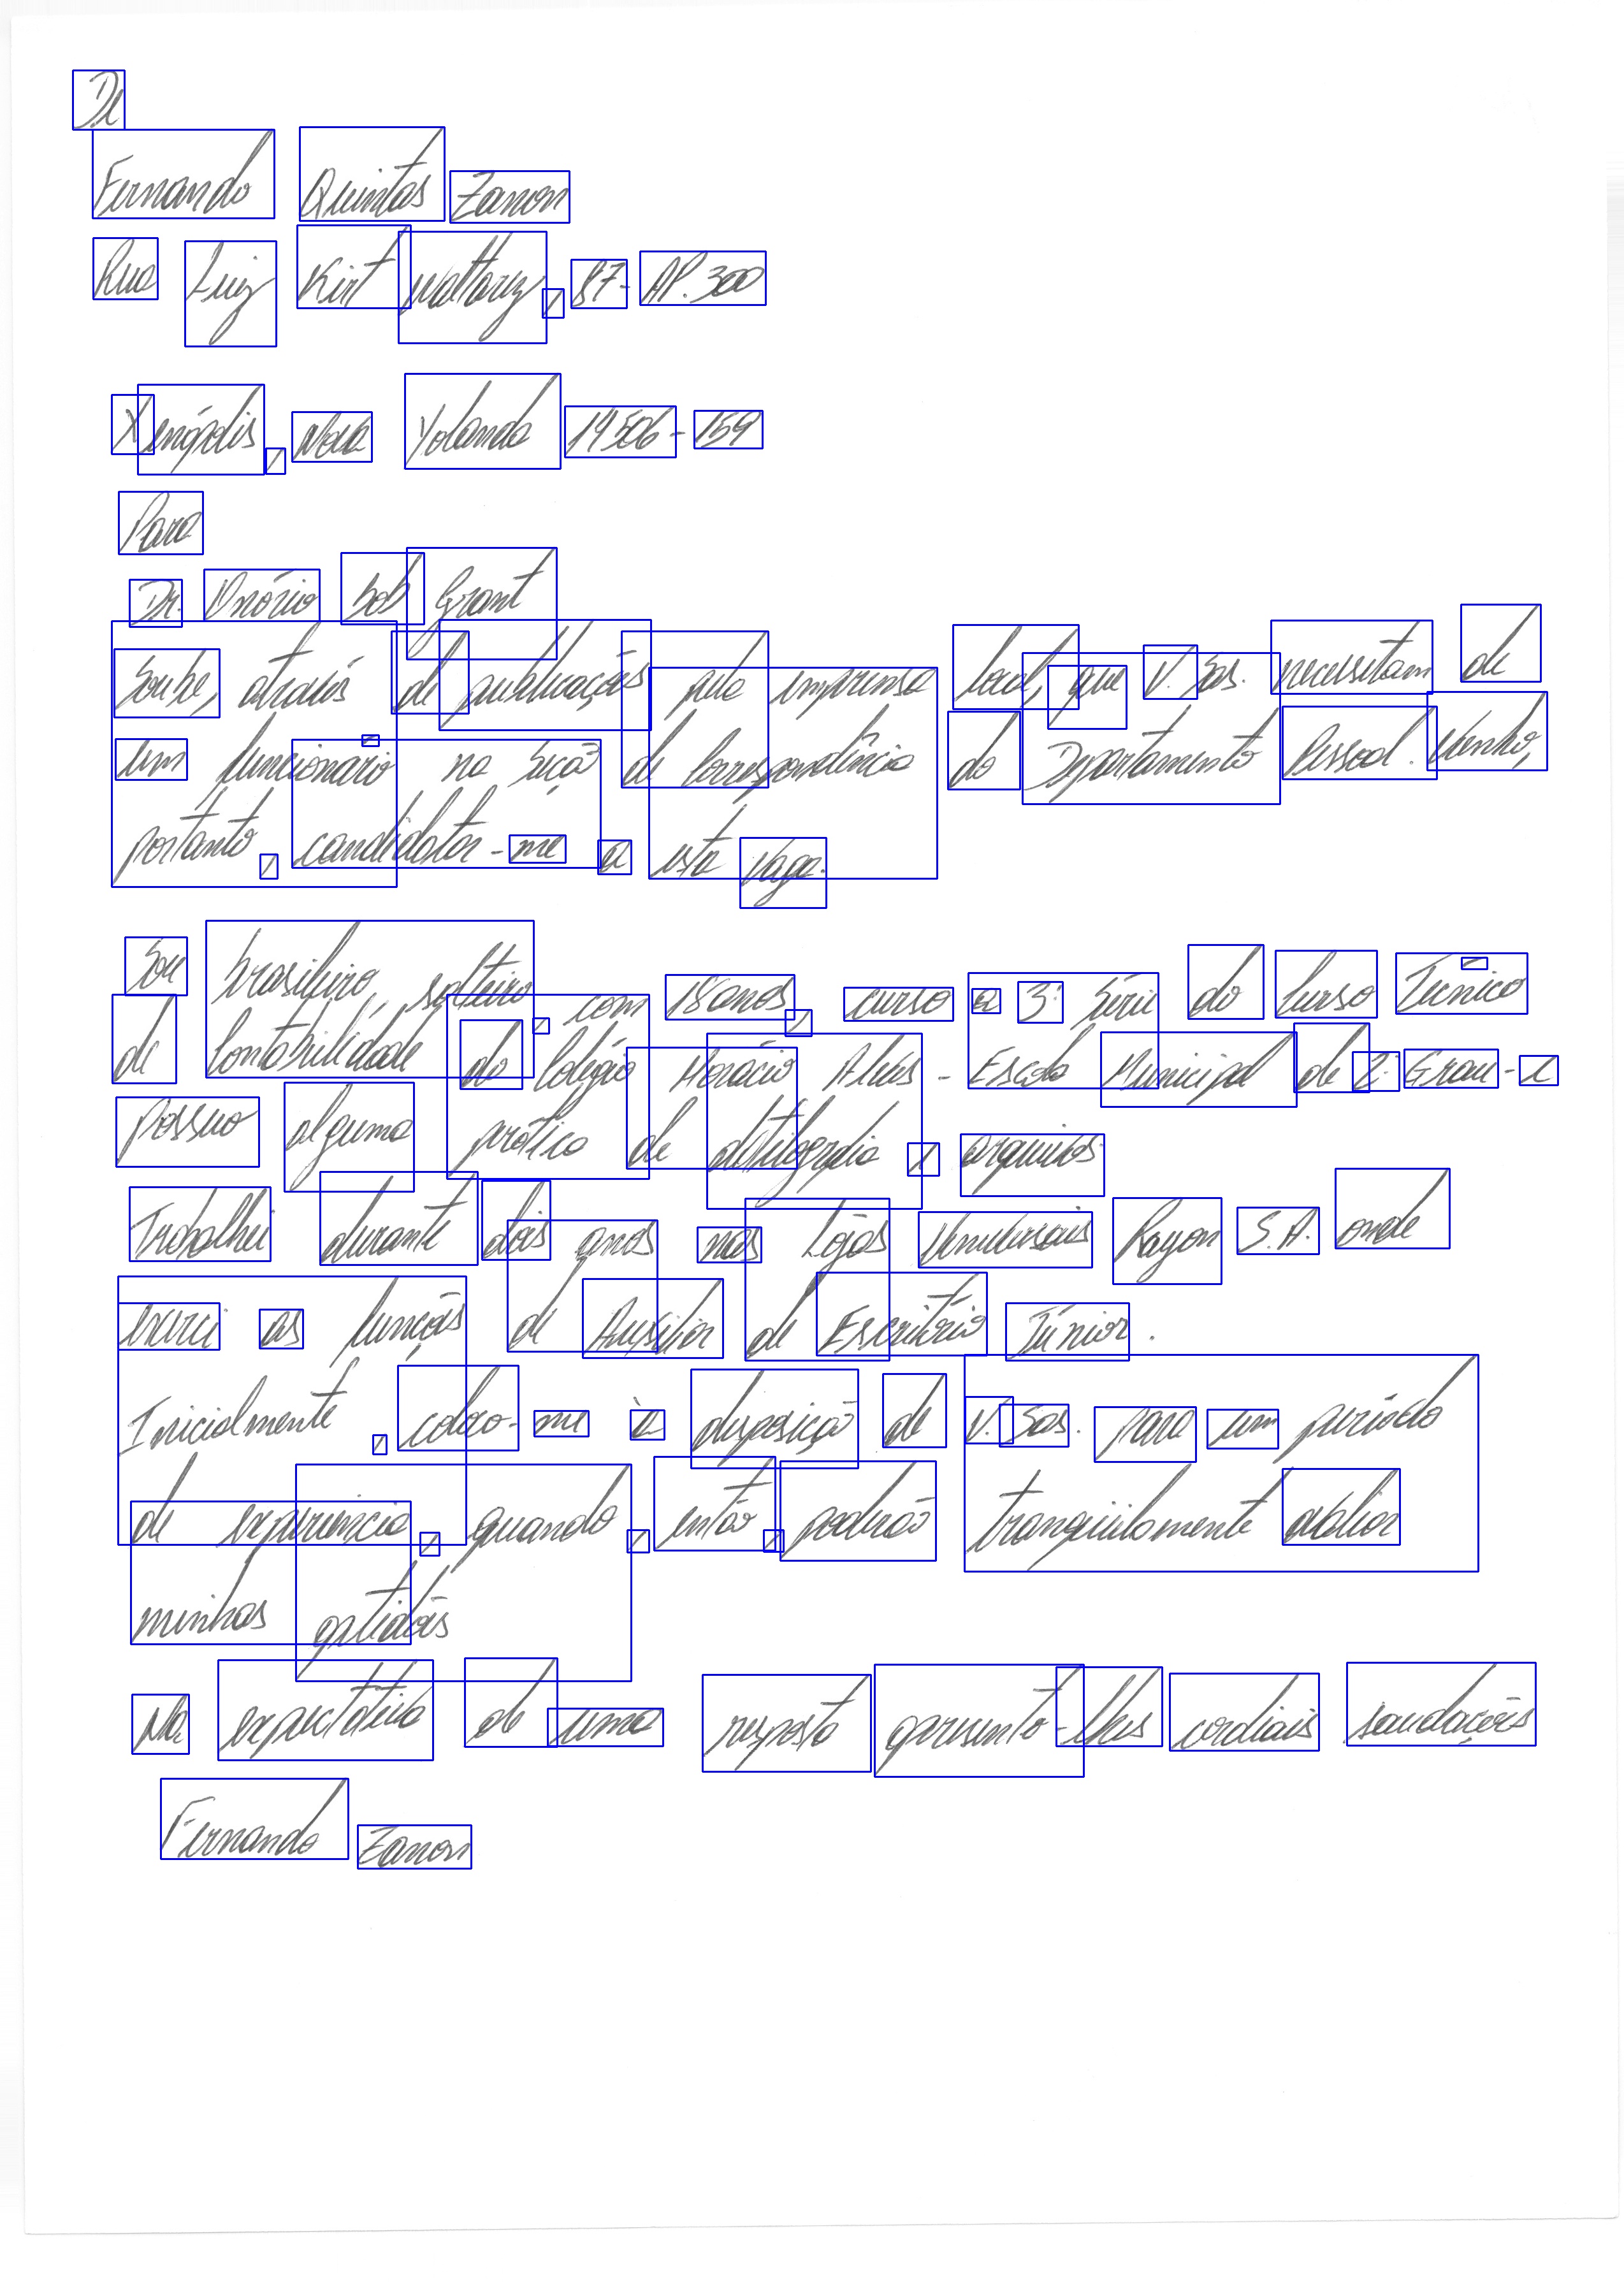 De
Fernando Quintas Zanon
Rua Luiz Kirt Waltary, 87- AP. 300
Xenópolis, Nova Yolanda 14506-159
Para
Dr. Onório Bob Grant
Soube, através de publicações pela imprensa local, que V. Sas. necessitam de
um funcionário na Seção de Correspondência do Departamento Pessoal. Venho,
portanto, candidatar-me a esta vaga.
Sou brasileiro, solteiro, com 18 anos, curso a 3ª Série do Curso Técnico
de Contabilidade do Colégio Horácio Alves - Escola Municipal de 2º Grau - e
possuo alguma prática de datilografia e arquivos
Trabalhei durante dois anos nas Lojas Universais Rayon S.A. onde
exerci as funções de Auxiliar de Escritório Júnior.
Inicialmente, coloco-me à disposição de V. Sas. para um período
de experiência, quando, então, poderão tranqüilamente avaliar
minhas aptidões
Na expectativa de uma resposta apresento-lhes cordiais saudações
Fernando Zanon